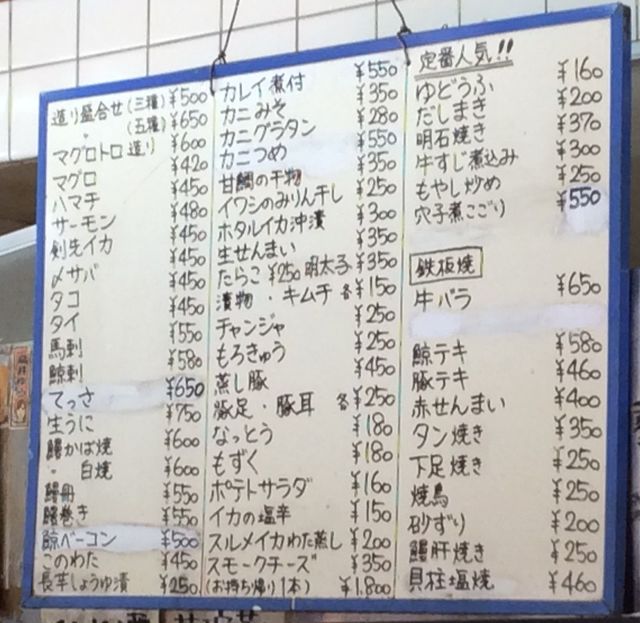 造り盛合せ(三種) ¥500
〃 (五種) ¥650
マグロトロ造り ¥600
マグロ ¥420
ハマチ ¥450
サーモン ¥480
剣先イカ ¥450
〆サバ ¥450
タコ ¥450
タイ ¥450
馬刺 ¥550
鯨刺 ¥580
てっさ ¥650
生うに ¥750
鰻かば焼 ¥600
〃 白焼 ¥600
鰻冊 ¥550
鰻巻き ¥550
鯨ベーコン ¥500
このわた ¥450
長芋しょうゆ漬 ¥250
カレイ煮付 ¥550
カニみそ ¥350
カニグラタン ¥280
カニつめ ¥550
甘鯛の干物 ¥350
イワシのみりん干し ¥250
ホタルイカ沖漬 ¥300
生せんまい ¥350
たらこ ¥250 明太子 ¥350
漬物・キムチ 各¥150
チャンジャ ¥250
もろきゅう ¥250
蒸し豚 ¥450
豚足・豚耳 各¥250
なっとう ¥180
もずく ¥180
ポテトサラダ ¥160
イカの塩辛 ¥150
スルメイカわた蒸し ¥200
スモークチーズ ¥350
(お持ち帰り1本) ¥1.800
定番人気!!
ゆどうふ ¥160
だしまき ¥200
明石焼き ¥370
牛すじ煮込み ¥300
もやし炒め ¥250
穴子煮こごり ¥550
鉄板焼
牛バラ ¥650
鯨テキ ¥580
豚テキ ¥460
赤せんまい ¥400
タン焼き ¥350
下足焼き ¥250
焼鳥 ¥250
砂ずり ¥200
鰻肝焼き ¥250
貝柱塩焼 ¥460